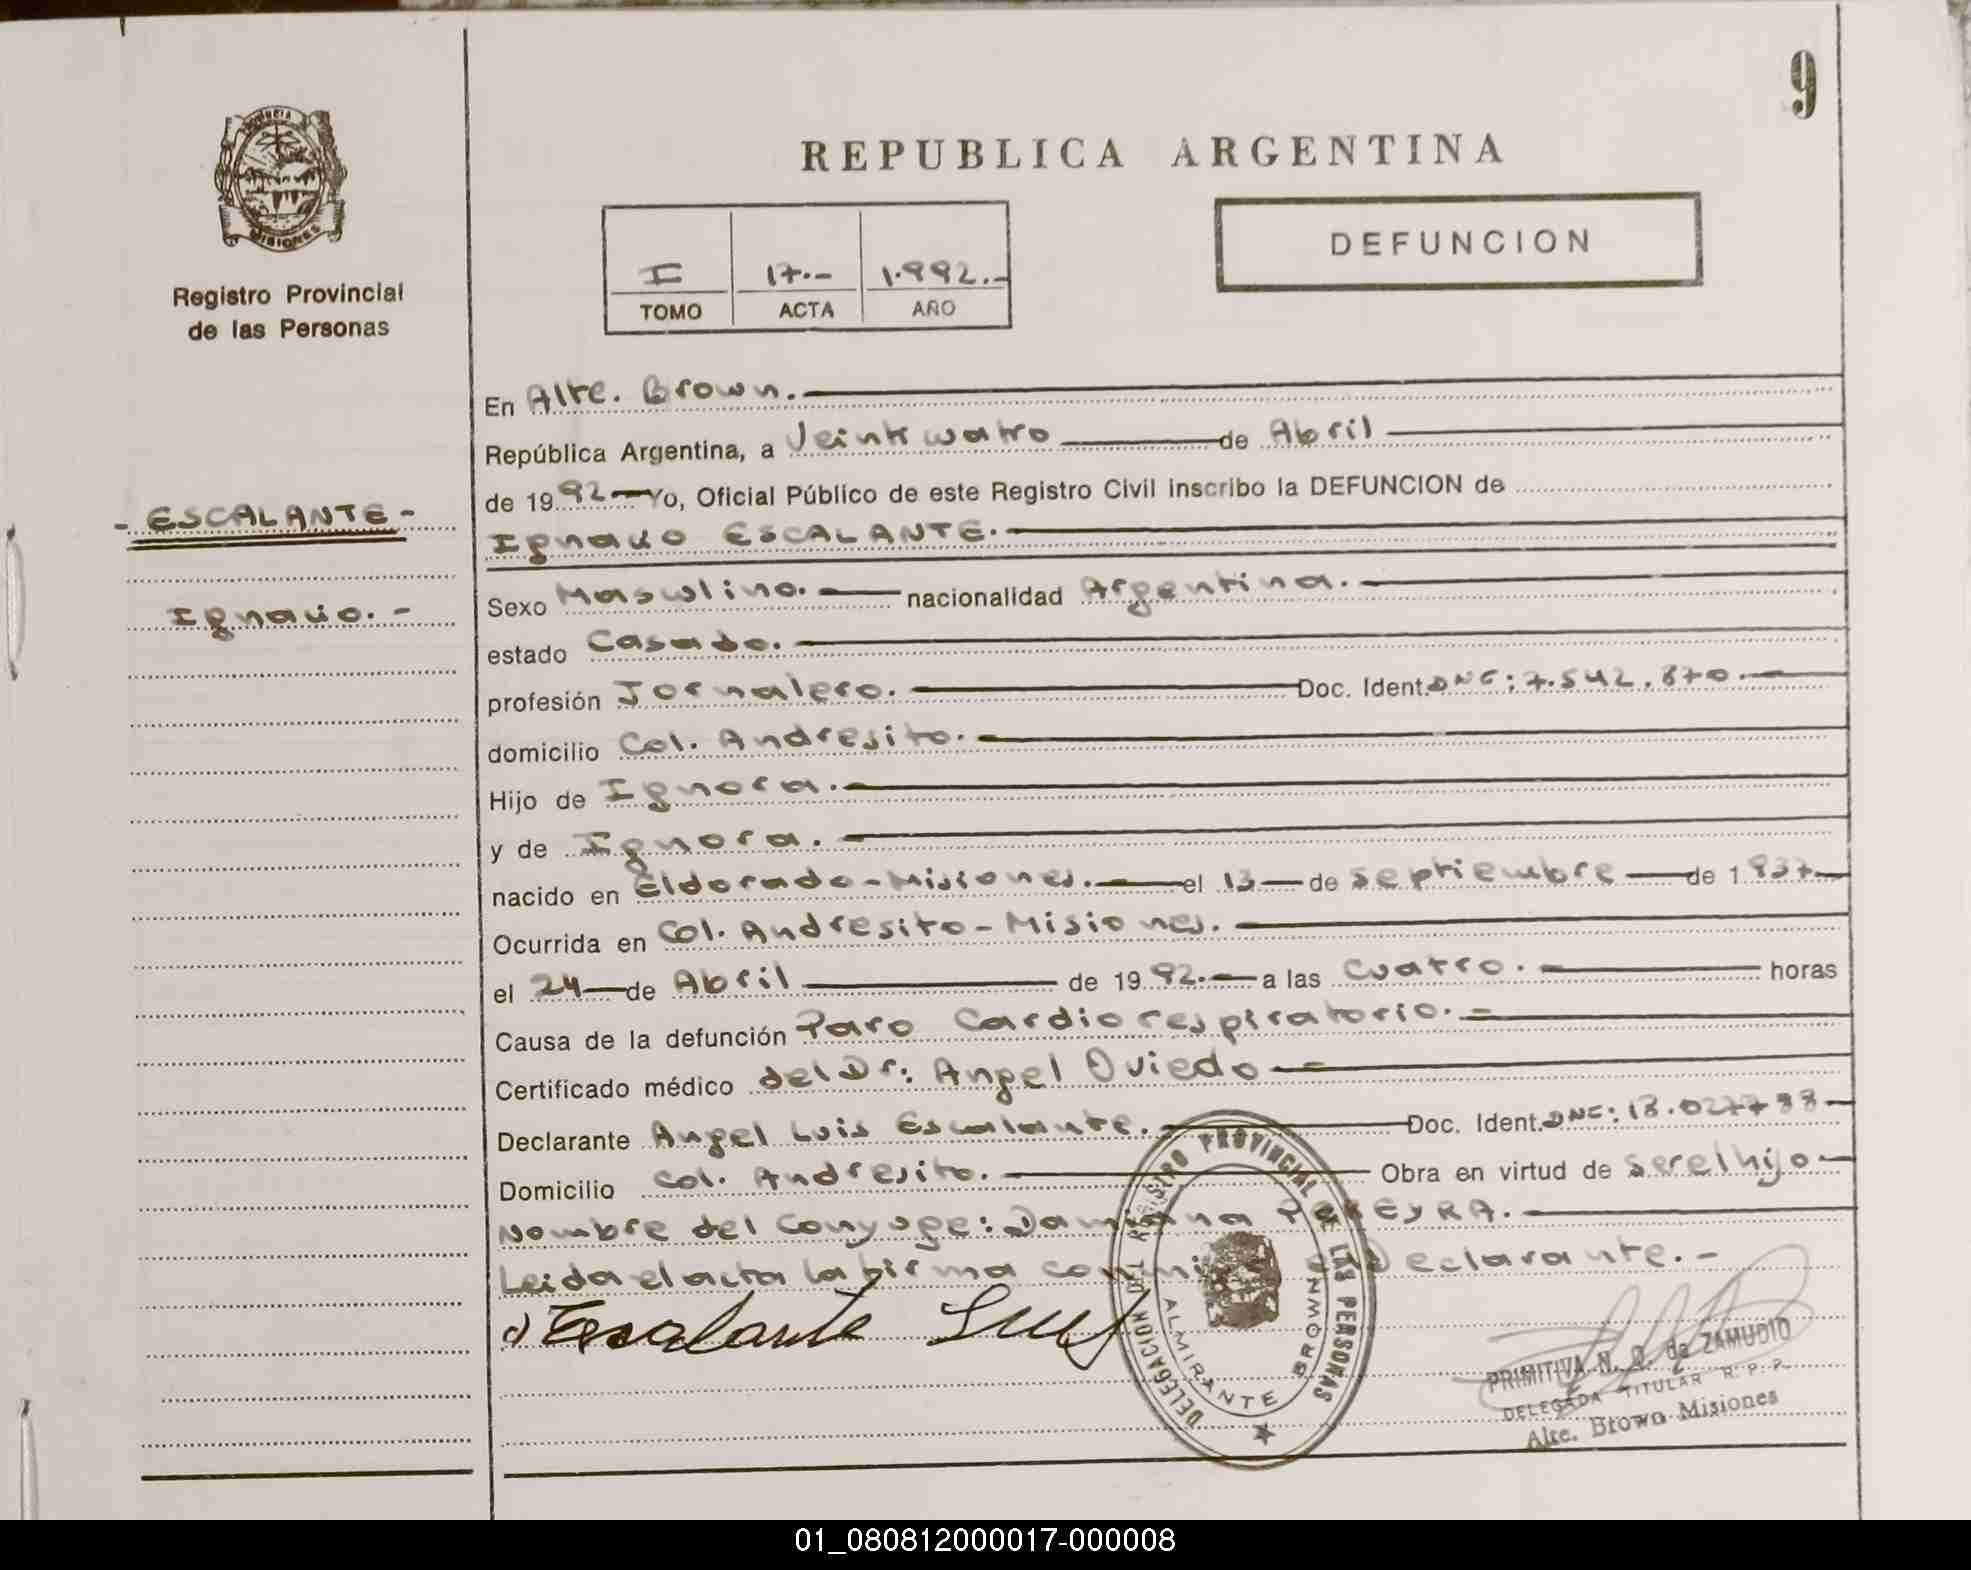 9
PROVINCIA
MISIONES
REPUBLICA ARGENTINA
DEFUNCION
I 17.- 1.992.-
TOMO ACTA AÑO
Registro Provincial
de las Personas
- ESCALANTE -
Ignacio. -
En Alte. Brown.
República Argentina, a Veinticuatro de Abril
de 1992 Yo, Oficial Público de este Registro Civil inscribo la DEFUNCION de
Ignacio ESCALANTE.
Sexo Masculino. nacionalidad Argentina.
estado Casado.
profesión Jornalero. Doc. Ident.
domicilio Col. Andresito.
Hijo de Ignora.
y de Ignora.
nacido en Eldorado-Misiones. el 13 de Septiembre de 1937
Ocurrida en Col. Andresito-Misiones.
el 24 de Abril de 1992.- a las Cuatro. horas
Causa de la defunción Paro Cardiorespiratorio.
Certificado médico del Dr: Angel Oviedo
Declarante Angel Luis Escalante. Doc. Ident.
Domicilio Col. Andresito. Obra en virtud de ser el hijo
Nombre del Conyuge: Damiana PEREYRA.
Leida el acta la firma conmigo el Declarante.-
Escalante Luis
DELEGACION DEL REGISTRO PROVINCIAL DE LAS PERSONAS
ALMIRANTE BROWN
PRIMITIVA N. O. de ZAMUDIO
DELEGADA TITULAR R. P. P.
Alte. Brown Misiones
01_080812000017-000008